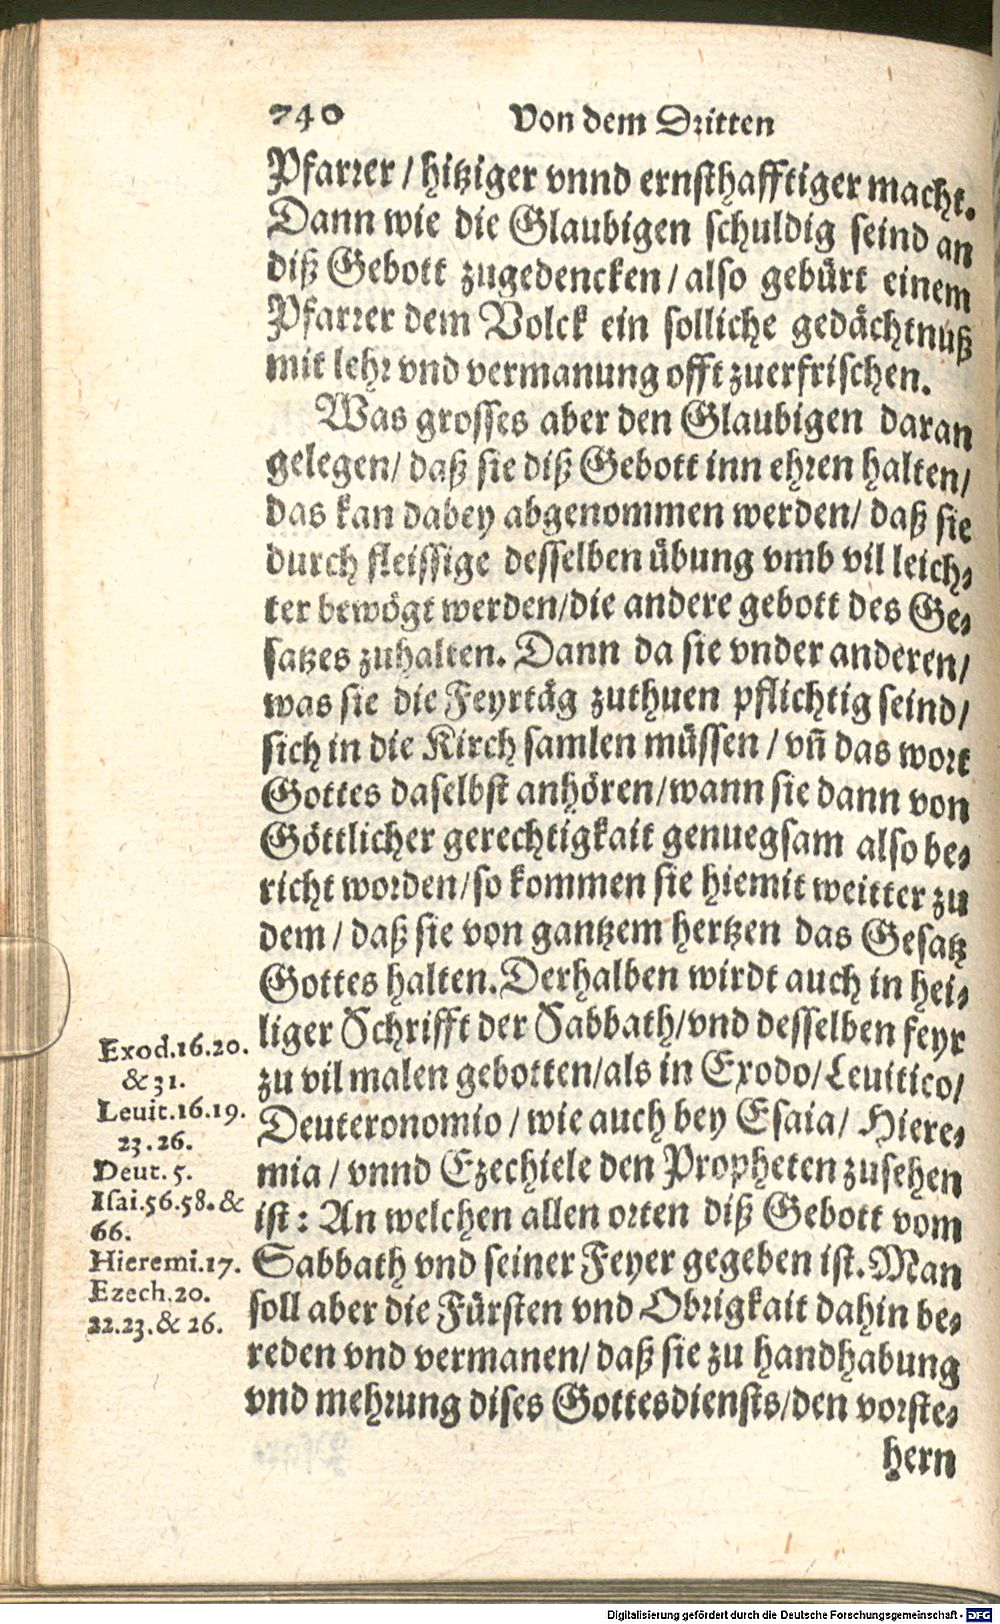 740 Von dem Dritten
Pfarrer / hitziger vnnd ernsthafftiger macht.
Dann wie die Glaubigen schuldig seind an
diß Gebott zugedencken / also gebürt einem
Pfarrer dem Volck ein solliche gedächtnuß
mit lehr vnd vermanung offt zuerfrischen.
Was grosses aber den Glaubigen daran
gelegen / daß sie diß Gebott inn ehren halten /
das kan dabey abgenommen werden / daß sie
durch fleissige desselben übung vmb vil leich⸗
ter bewögt werden / die andere gebott des Ge⸗
satzes zuhalten. Dann da sie vnder anderen /
was sie die Feyrtäg zuthuen pflichtig seind /
sich in die Kirch samlen müssen / vn̄ das wort
Gottes daselbst anhören / wann sie dann von
Göttlicher gerechtigkait genuegsam also be⸗
richt worden / so kommen sie hiemit weitter zu
dem / daß sie von gantzem hertzen das Gesatz
Gottes halten. Derhalben wirdt auch in hei⸗
liger Schrifft der Sabbath / vnd desselben feyr
zu vil malen gebotten / als in Exodo / Leuitico /
Deuteronomio / wie auch bey Esaia / Hiere⸗
mia / vnnd Ezechiele den Propheten zusehen
ist : An welchen allen orten diß Gebott vom
Sabbath vnd seiner Feyer gegeben ist. Man
soll aber die Fürsten vnd Obrigkait dahin be⸗
reden vnd vermanen / daß sie zu handhabung
vnd mehrung dises Gottesdiensts / den vorste⸗
hern
Exod.16.20.
& 31.
Leuit.16.19.
23.26.
Deut. 5.
Isai.56.58. &
66.
Hieremi.17.
Ezech.20.
22.23. & 26.
Digitalisierung gefördert durch die Deutsche Forschungsgemeinschaft - DFG